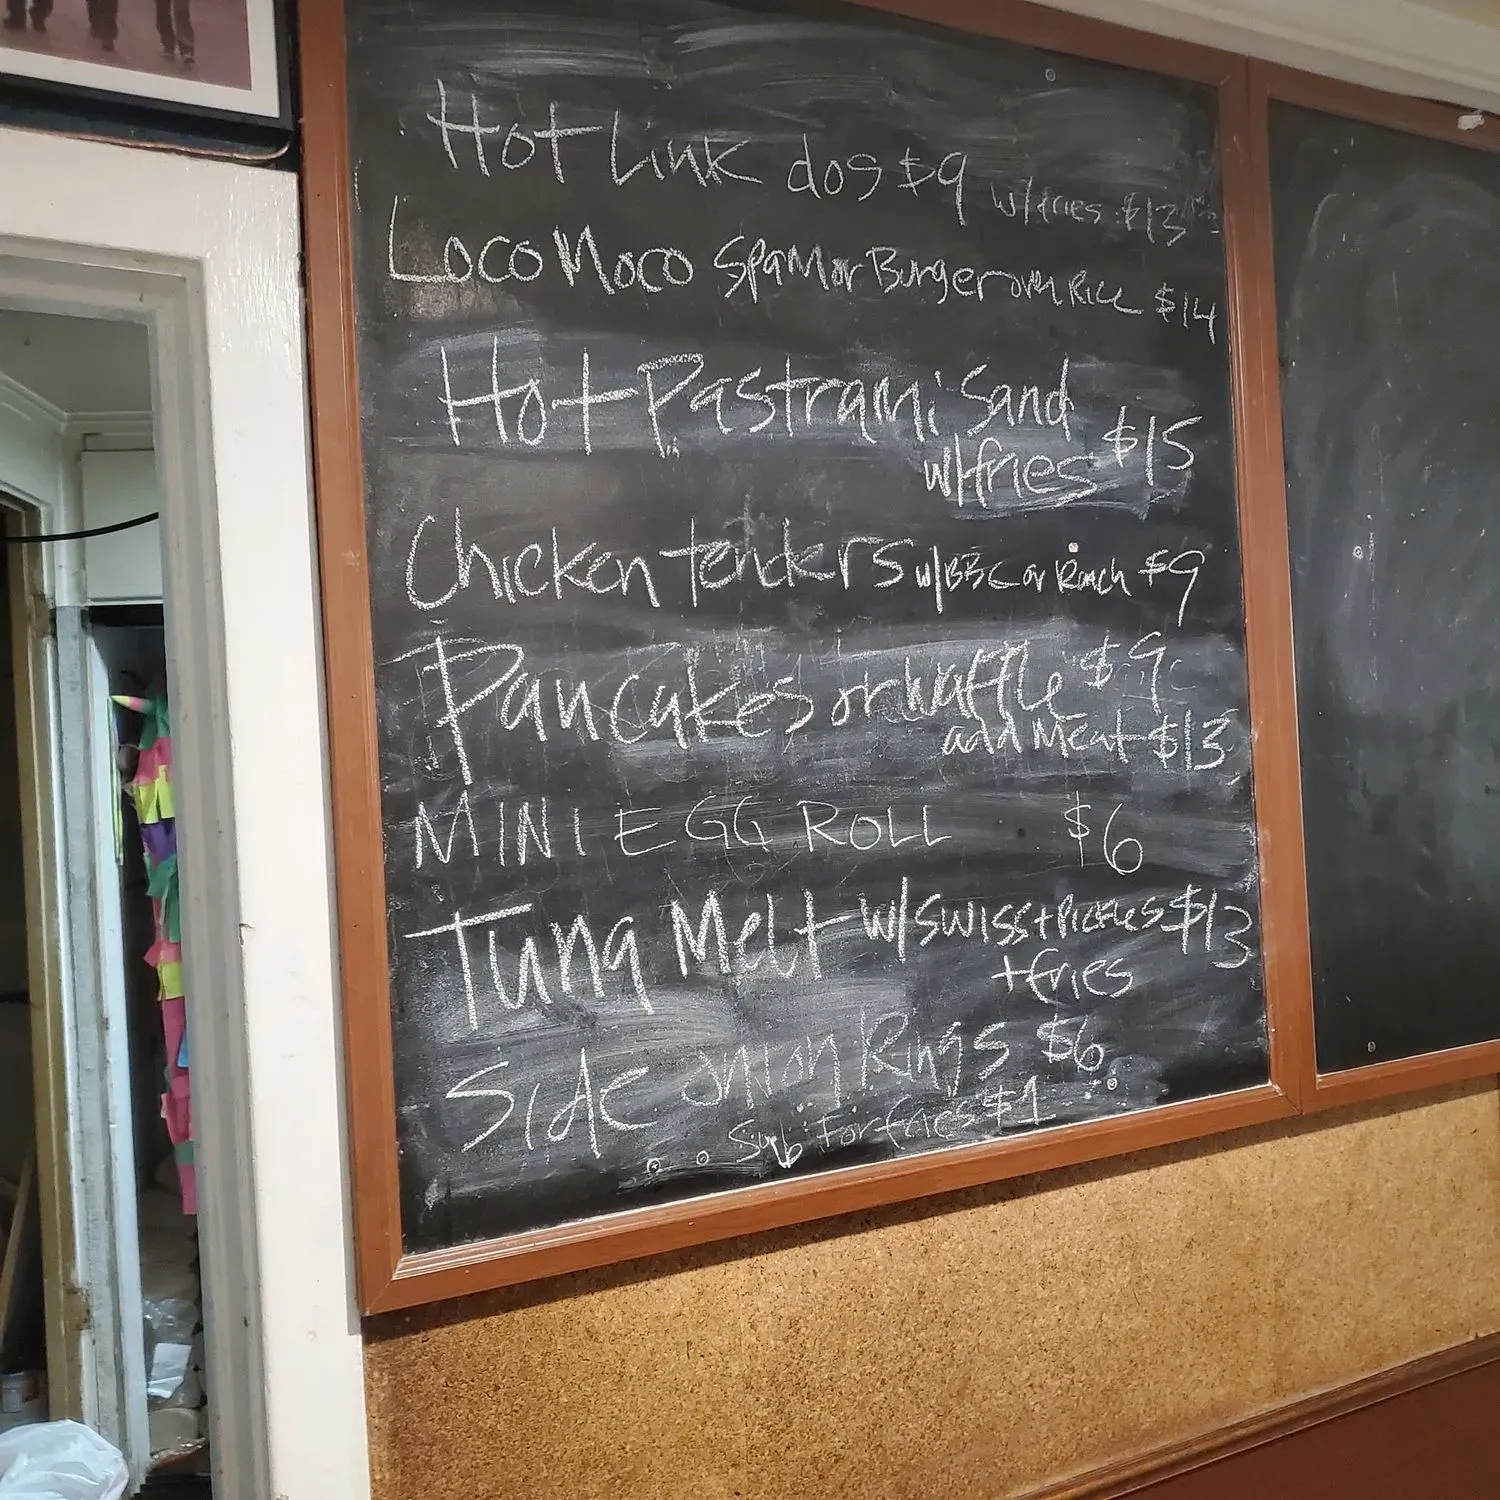 Hot Link dog $9 w/fries $13
Loco Moco Spam or Burger over Rice $14
Hot Pastrami Sand $15
w/fries
Chicken tenders w/BBC or Ranch $9
Pancakes or waffle $9
add Meat $13
MINI EGG ROLL $6
Tuna Melt w/swiss + Pickles $13
+ fries
Side onion Rings $6
Sub For fries $1